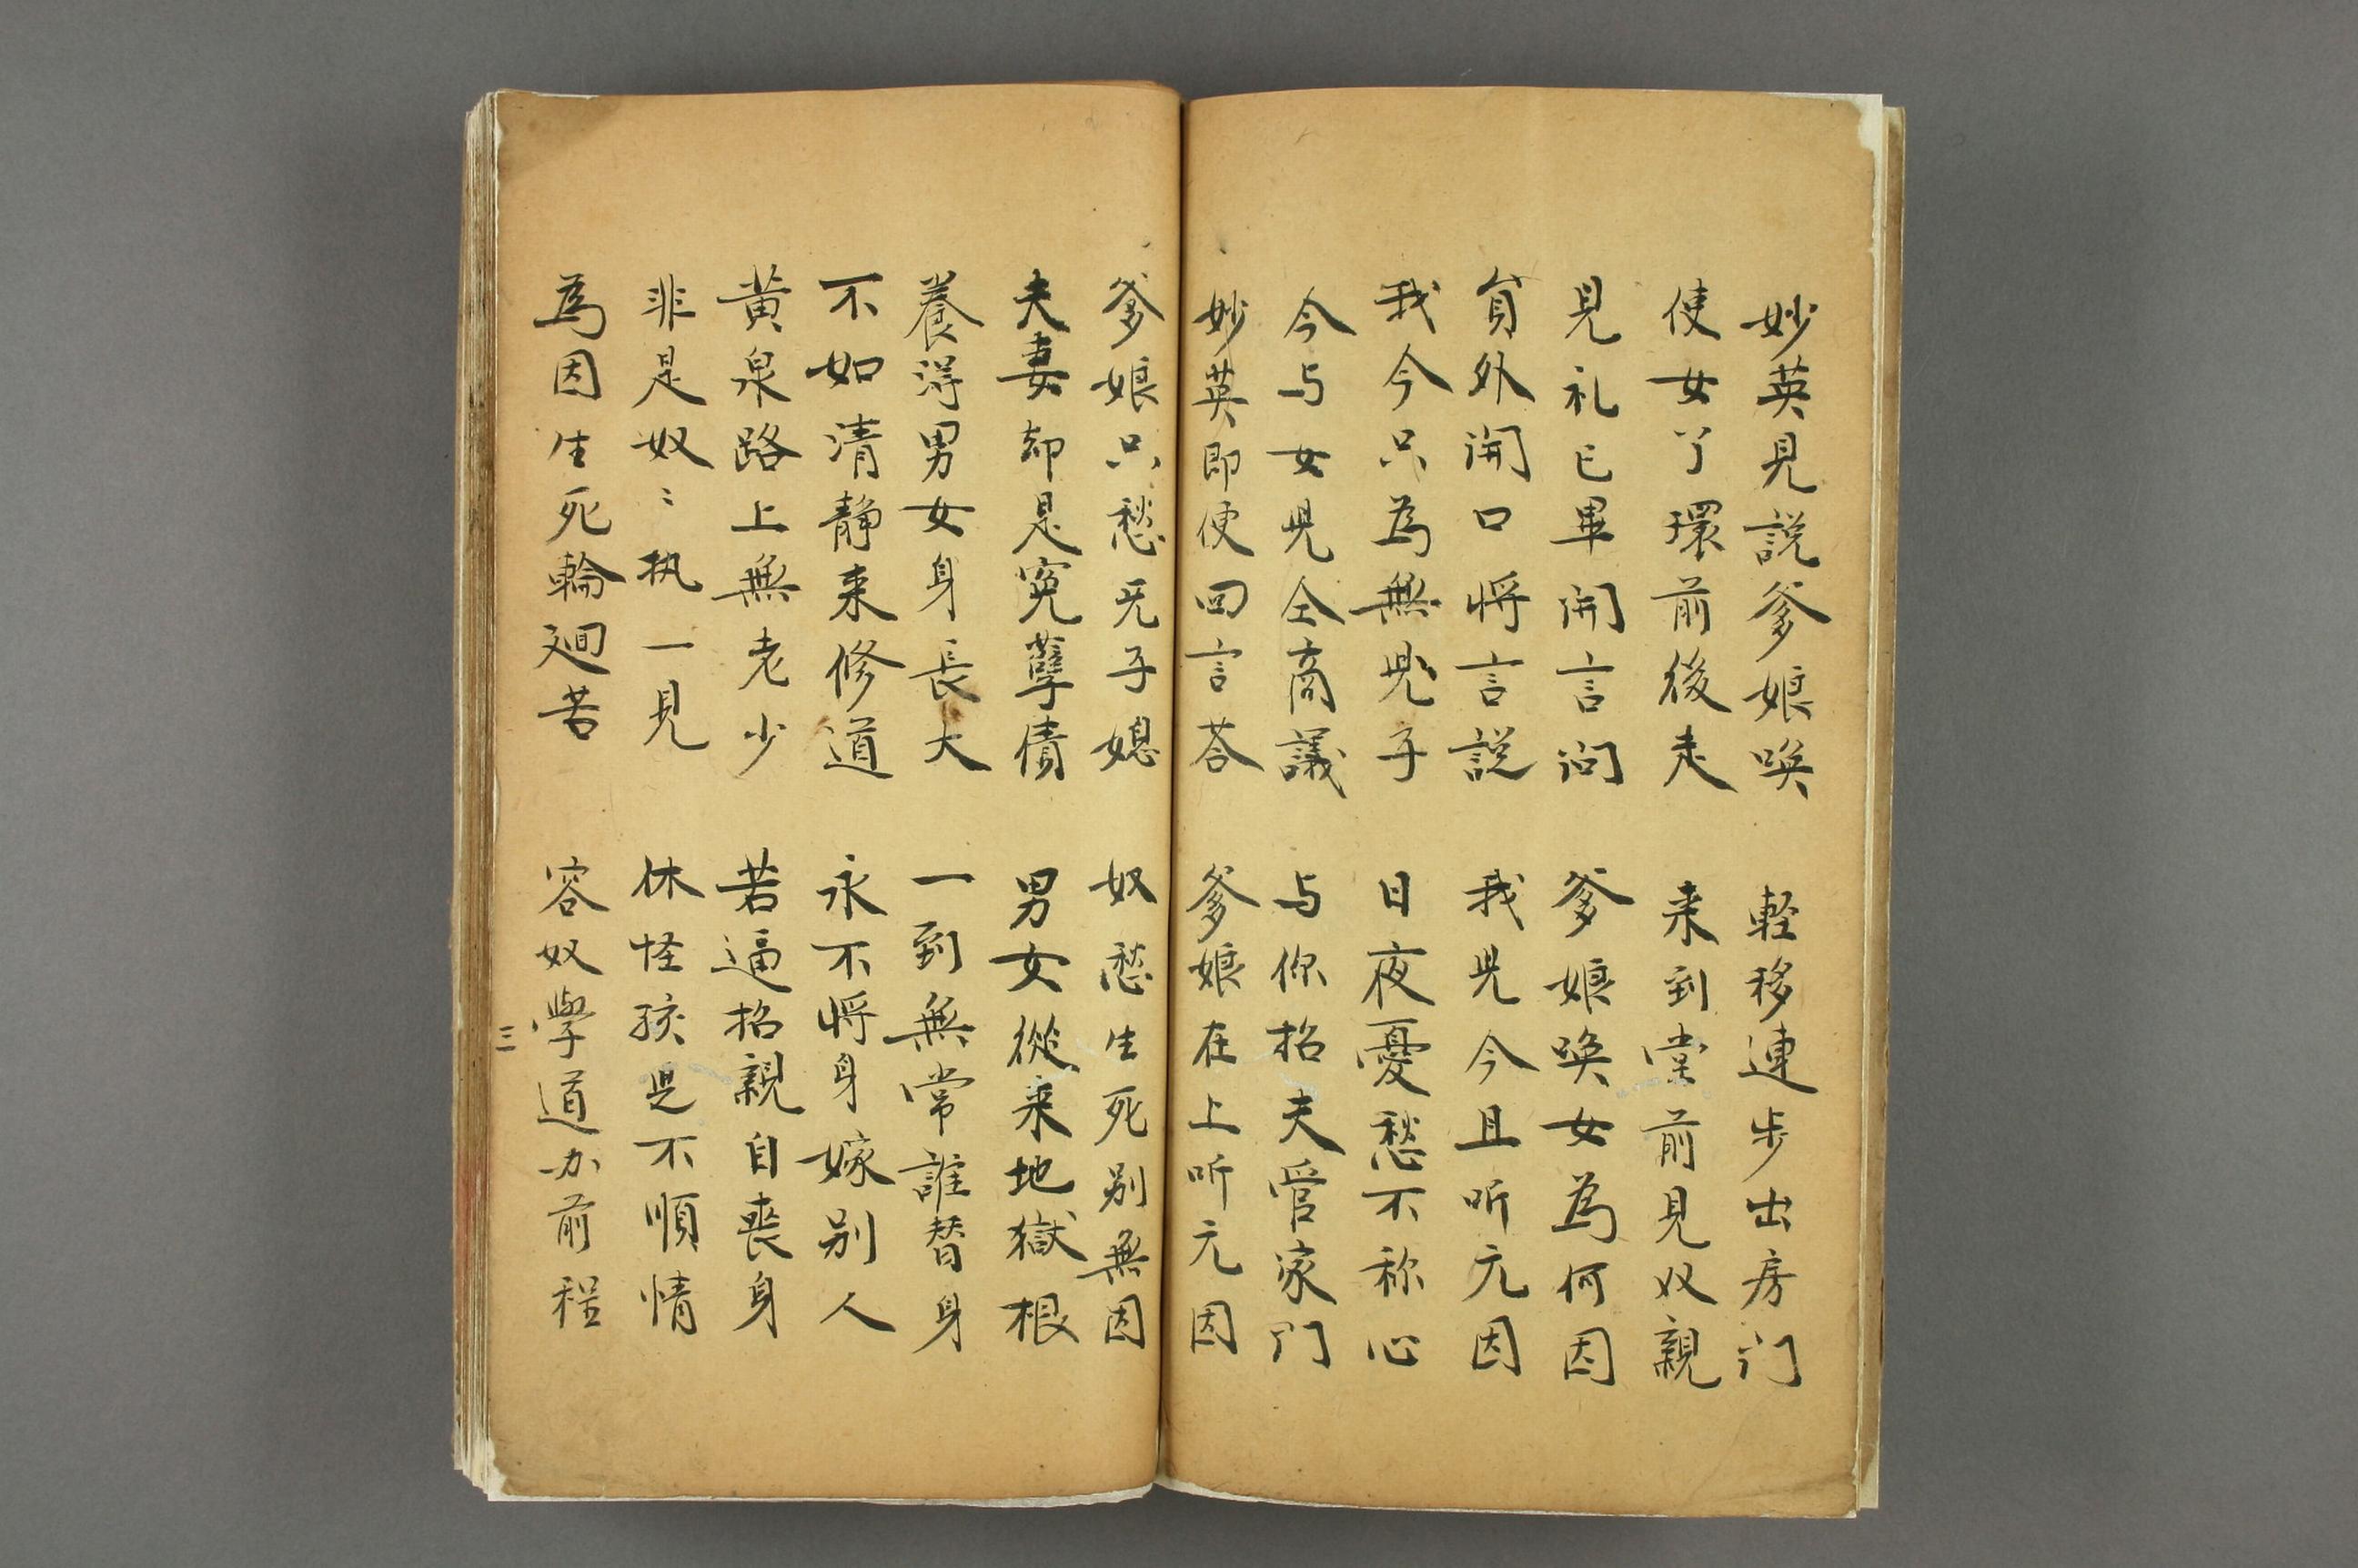 妙英見説爹娘喚　輕移連步出房门
使女丫環前後走　来到堂前見奴親
見礼已畢開言问　爹娘喚女為何因
員外開口将言説　我児今且听元因
我今只為無児子　日夜憂愁不称心
今与女児仝商議　与你招夫管家门
妙英即便回言荅　爹娘在上听元因
爹娘只愁无子媳　奴愁生死别無因
夫妻却是寃孽債　男女從来地獄根
養淂男女身長大　一到無常誰替身
不如清静来修道　永不将身嫁别人
黄泉路上無老少　若逼招親自喪身
非是奴〻执一見　休怪孩児不順情
為因生死輪廻苦　容奴學道办前程
三